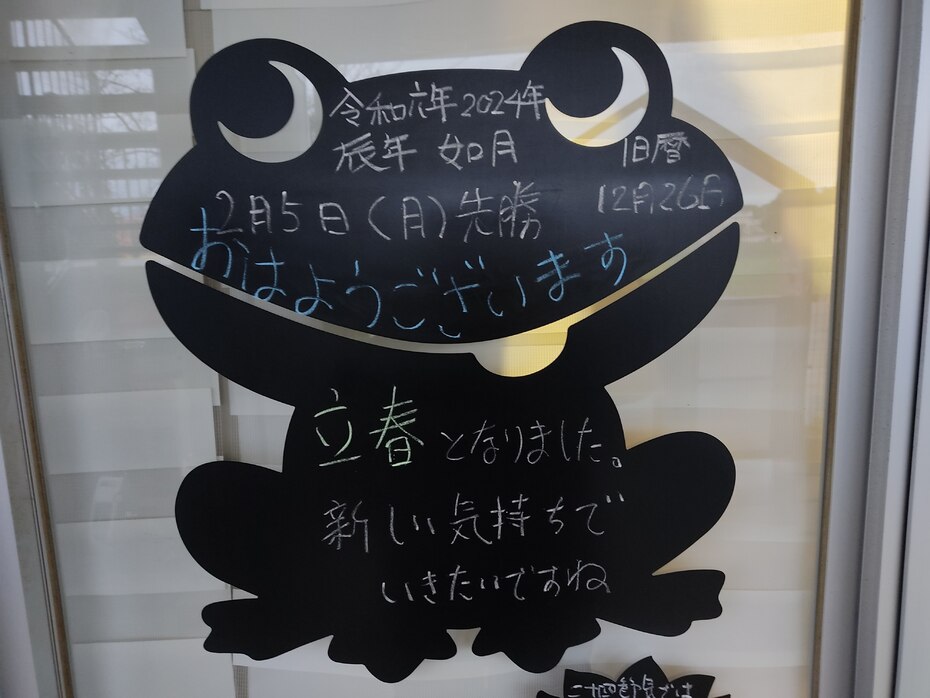 令和六年 2024年
辰年 如月
旧暦
12月26日
2月5日(月)先勝
おはようございます
立春となりました。
新しい気持ちで
いきたいですね
二十四節気では